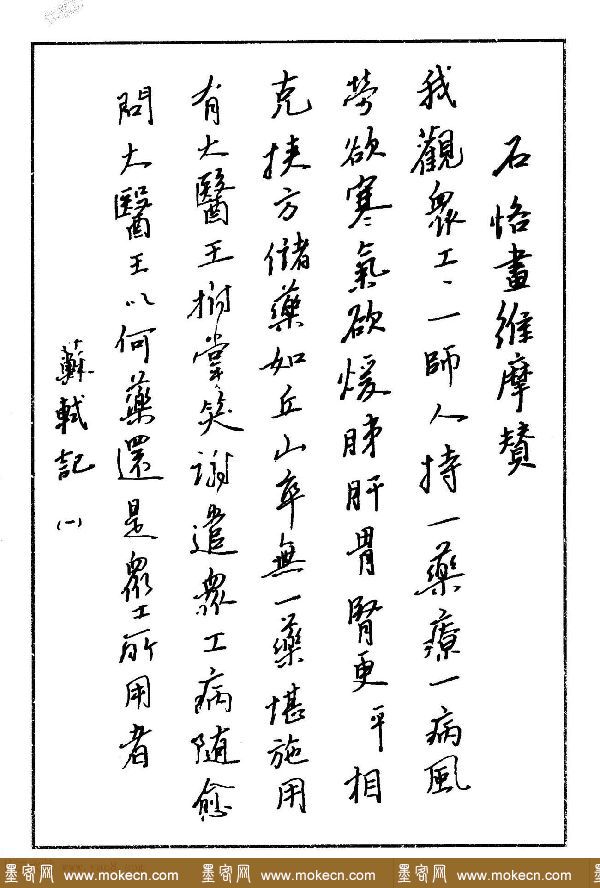 石恪畫維摩贊
我觀眾工、一師人持一藥療一病風
勞欲寒氣欲煖肺肝胃腎更平相
克挾方儲藥如丘山卒無一藥堪施用
有大醫王拊掌笑謝遣眾工病隨愈
問大醫王以何藥還是眾工所用者
蘇軾記(一)
墨客网 www.mokecn.com 墨客网 www.mokecn.com 墨客网 www.mokecn.com